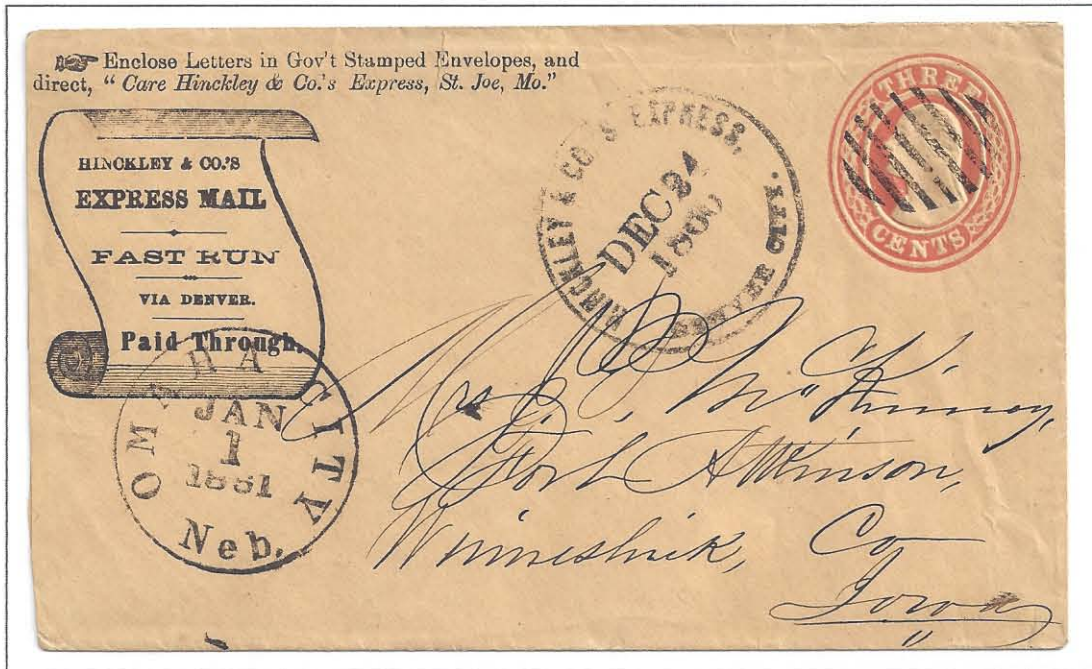 Enclose Letters in Gov't Stamped Envelopes, and
direct, "Care Hinckley & Co.'s Express, St. Joe, Mo."
HINCKLEY & CO.'S
EXPRESS MAIL
FAST RUN
VIA DENVER.
Paid Through.
HINCKLEY & CO'S EXPRESS,
DEC 24
1860
DENVER CITY.
THREE
CENTS
OMAHA CITY
JAN
1
1861
Neb.
Mrs C. McKinney,
Fort Atkinson,
Winneshiek, Co
Iowa